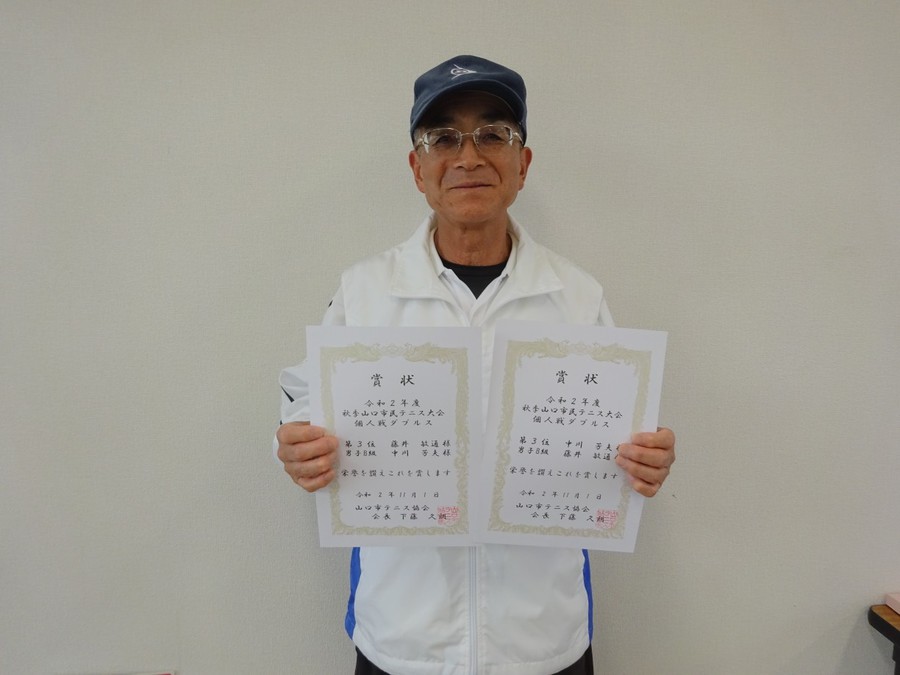 賞 状
令和２年度
秋季山口市民テニス大会
個人戦ダブルス
第３位 藤井 敏通様
男子B級 中川 芳夫様
栄誉を讃えこれを賞します
令和 ２年 11月 1日
山口市テニス協会
会長 下藤 久朗
賞 状
令和２年度
秋季山口市民テニス大会
個人戦ダブルス
第３位 中川 芳夫
男子B級 藤井 敏通
栄誉を讃えこれを賞します
令和 ２年 11月 1日
山口市テニス協会
会長 下藤 久朗